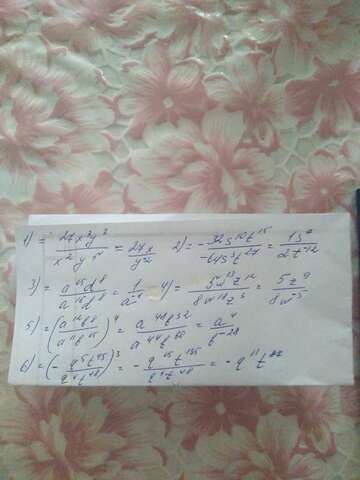 1) = 27x³y³ / x²y⁵ = 27x / y² 2) = - 32s¹⁰t¹⁵ / -64s³t²⁷ = 1s⁷ / 2t⁻¹²
3) = a¹⁵d⁸ / a¹⁶d⁸ = 1 / a⁻¹ 4) = 5w¹³z¹² / 8w¹⁸z³ = 5z⁹ / 8w⁻⁵
5) = (a¹²b⁸ / a¹¹b¹⁵)⁴ = a⁴⁸b³² / a⁴⁴b⁶⁰ = a⁴ / b⁻²⁸
6) = (- q⁵t⁴⁵ / q⁴t⁴⁸)³ = - q¹⁵t¹³⁵ / q⁴t⁴⁸ = - q¹¹t